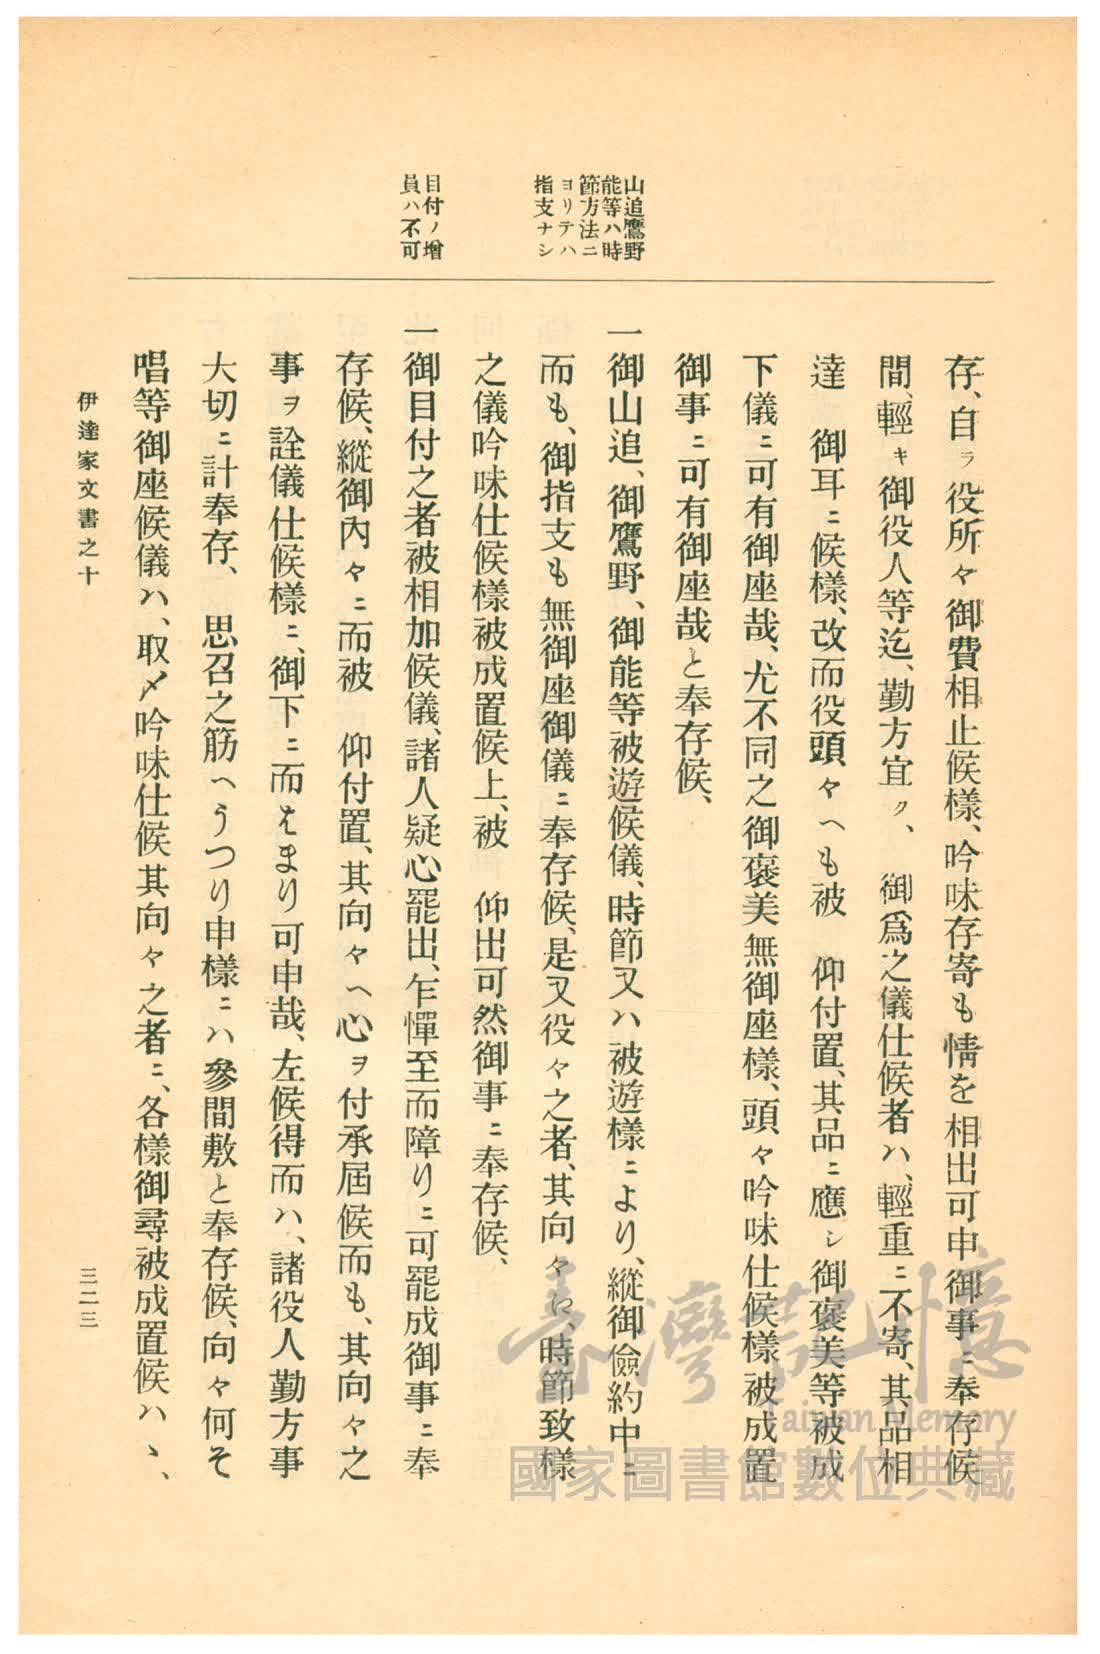 山追鷹野
能等ハ時
節方法ニ
ヨリテハ
指支ナシ
目付ノ增
員ハ不可
存、自ラ役所々御費相止候樣、吟味存寄も情を相出可申御事ニ奉存候
間、輕キ御役人等迄、勤方宜ク、御爲之儀仕候者ハ、輕重ニ不寄、其品相
達　御耳ニ候樣、改而役頭々へも被　仰付置、其品ニ應シ御褒美等被成
下儀ニ可有御座哉、尤不同之御褒美無御座樣、頭々吟味仕候樣被成置
御事ニ可有御座哉と奉存候、
一御山追、御鷹野、御能等被遊候儀、時節又ハ被遊樣ニより、縱御儉約中ニ
而も、御指支も無御座御儀ニ奉存候、是又役々之者、其向々に、時節致樣
之儀吟味仕候樣被成置候上、被　仰出可然御事ニ奉存候、
一御目付之者被相加候儀、諸人疑心罷出、乍憚至而障りニ可罷成御事ニ奉
存候、縱御內々ニ而被　仰付置、其向々へ心ヲ付承屆候而も、其向々之
事ヲ詮儀仕候樣ニ、御下ニ而はまり可申哉、左候得而ハ、諸役人勤方事
大切ニ計奉存、　思召之筋へうつり申樣ニハ參間敷と奉存候、向々何そ
唱等御座候儀ハ、取〆吟味仕候其向々之者ニ、各樣御尋被成置候ハヽ、
伊達家文書之十
三二三
臺灣記憶
Taiwan Memory
國家圖書館數位典藏